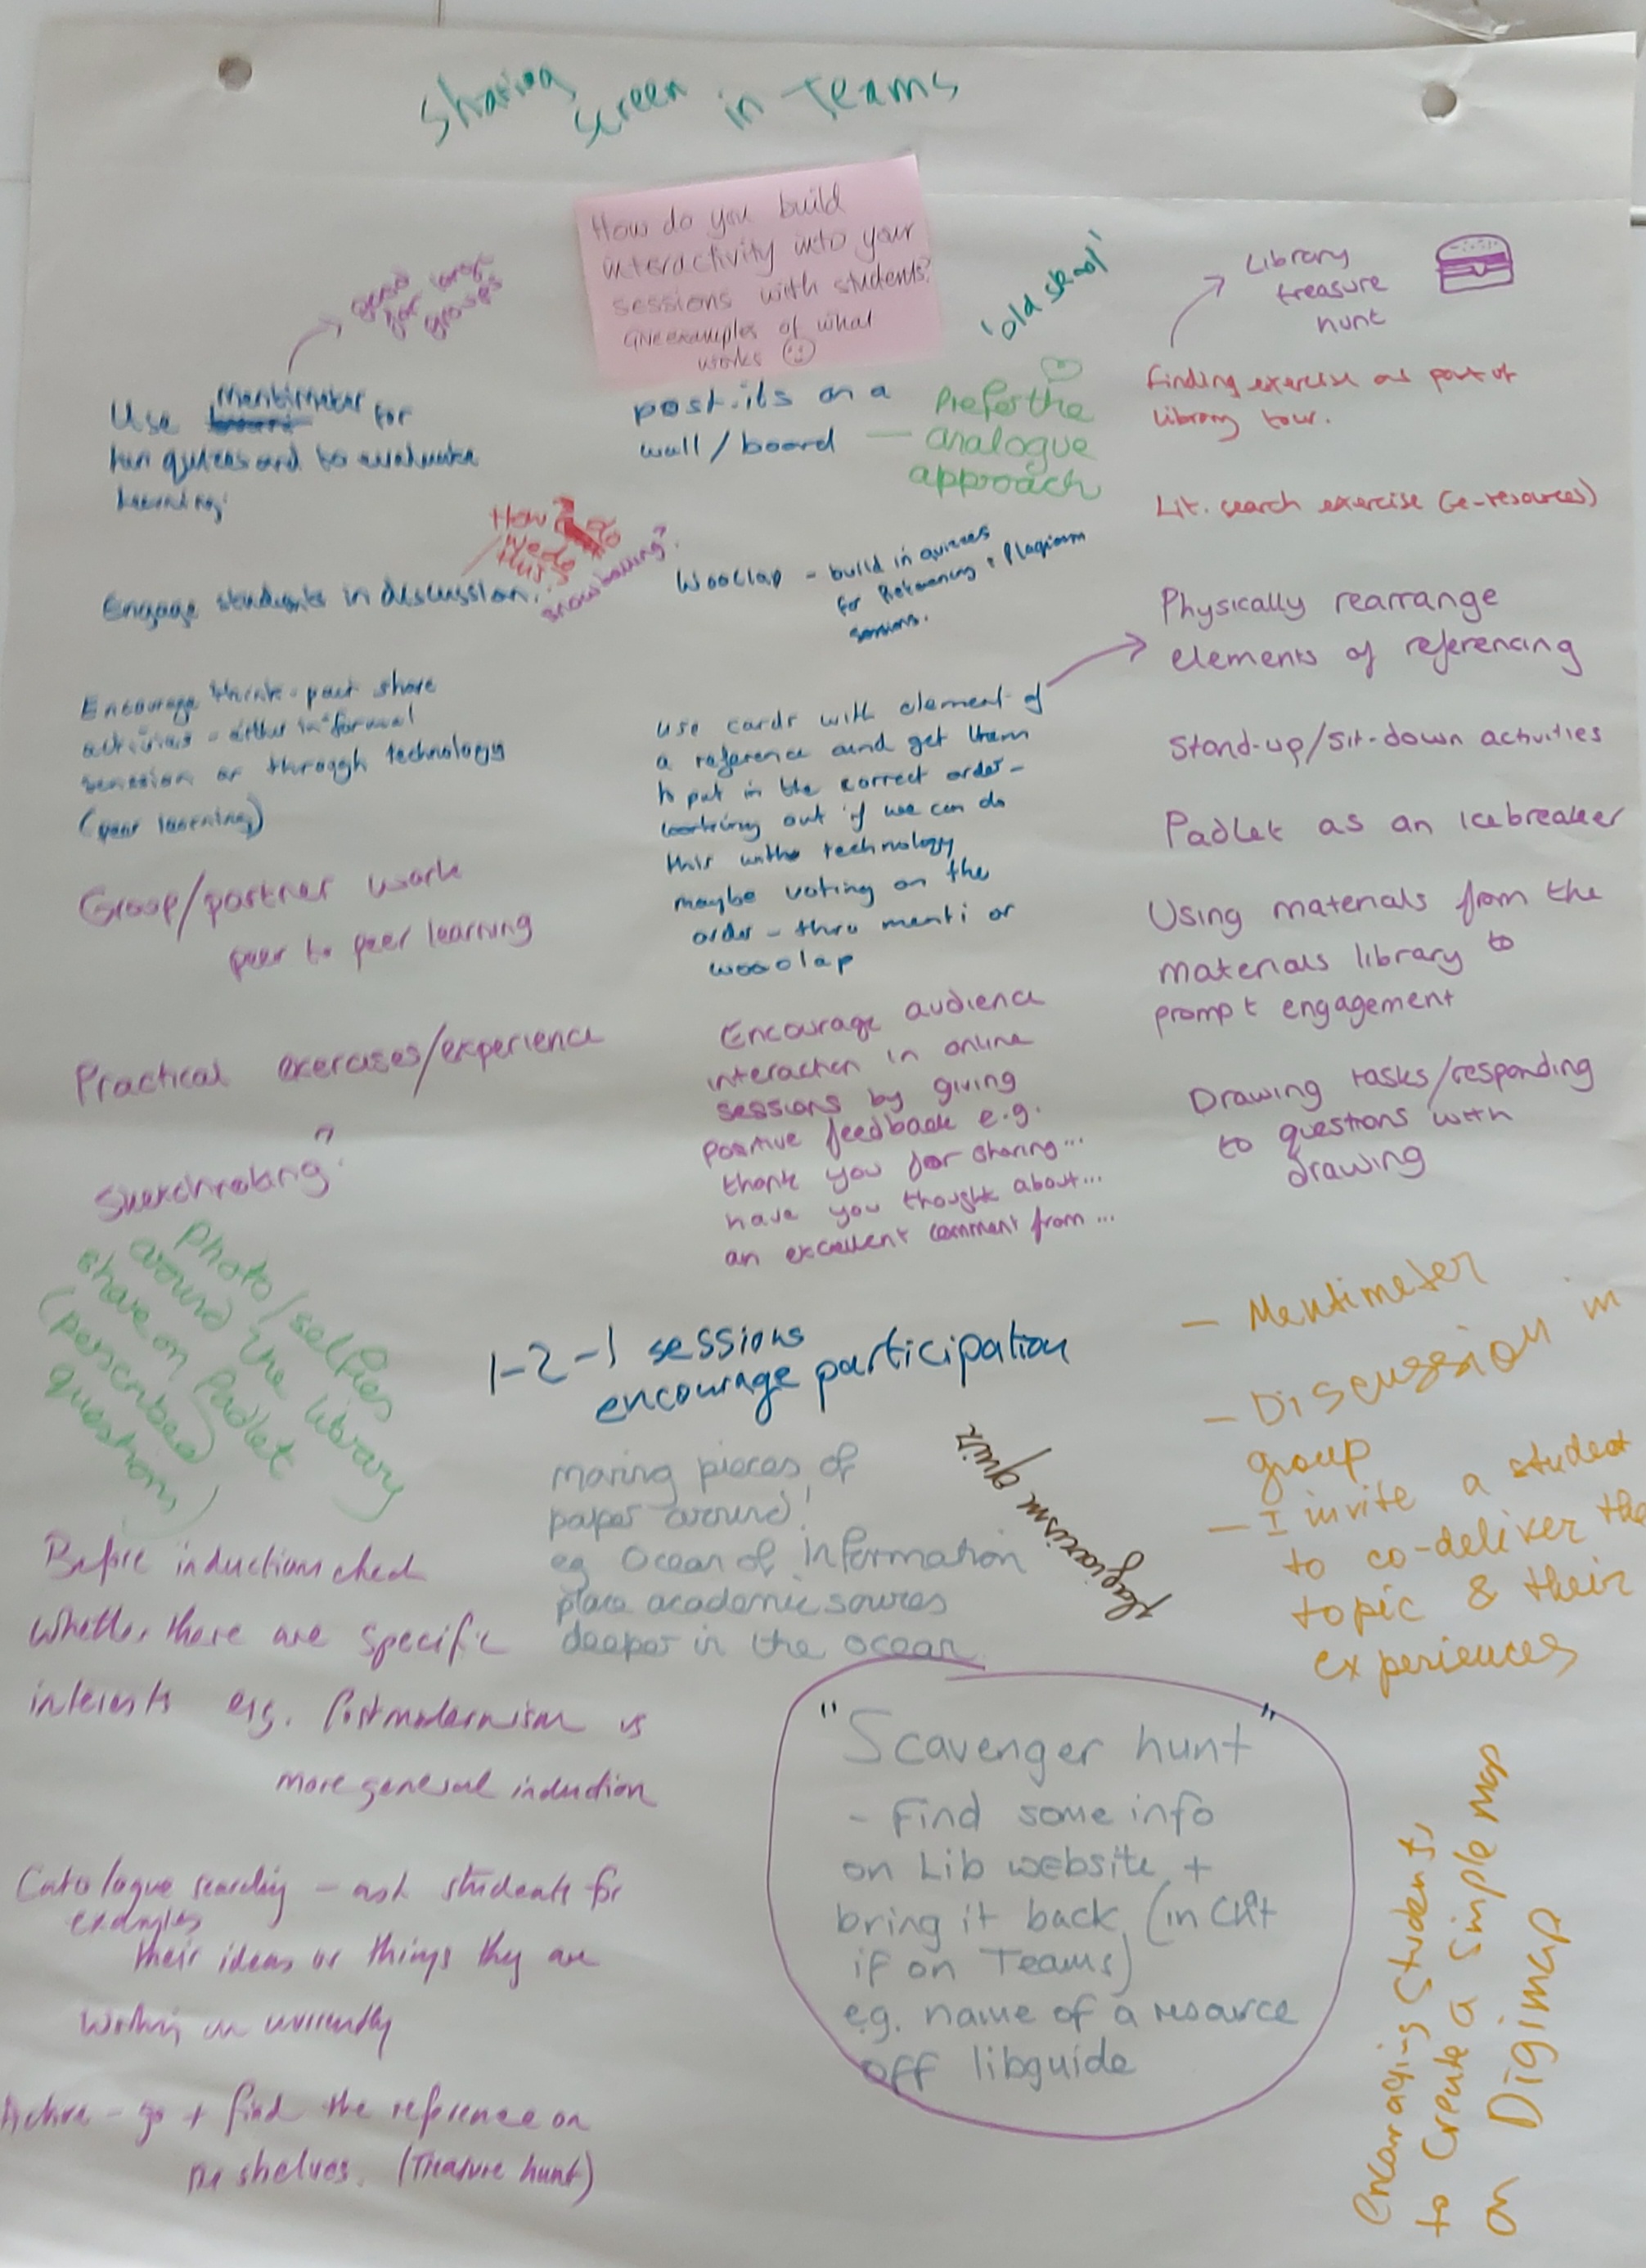 Sharing
screen in Teams
How do you build
interactivity into your
sessions with students?
Give examples of what
works
good
for large
groups
Use Mentimeter for
fun quizzes and to evaluate
learning.
post-its on a
wall/board —
Prefer the
analogue
approach
'old skool'
Library
treasure
hunt
Finding exercise as part of
library tour.
Lit. search exercise (e-resources)
How do
we do
this?
Engage students in discussion.
snowballing?
Wooclap - build in quizzes
for Referencing + Plagiarism
sessions.
Physically rearrange
elements of referencing
Stand-up/sit-down activities
Padlet as an icebreaker
Using materials from the
materials library to
prompt engagement
Drawing tasks/responding
to questions with
drawing
Encourage think-pair share
activities - either in formal
session or through technology
(peer learning)
Group/partner work
peer to peer learning
Practical exercises/experience
Sketchnoting?
use cards with element of
a reference and get them
to put in the correct order -
working out if we can do
this with technology
maybe voting on the
order - thro menti or
wooclap
Encourage audience
interaction in online
sessions by giving
positive feedback e.g.
thank you for sharing...
have you thought about...
an excellent comment from...
Photo/selfies
around the library
share on Padlet
(perscribed
questions)
1-2-1 sessions
encourage participation
moving pieces of
paper around!
eg Ocean of information
place academic sources
deeper in the ocean
plagiarism quiz
- Mentimeter
- Discussion in
group
- I invite a student
to co-deliver the
topic & their
experiences
Before induction check
whether there are specific
interests e.g. Postmodernism vs
more general induction
Catalogue searching - ask students for
examples
their ideas or things they are
working on currently
Active - go + find the reference on
the shelves. (Treasure hunt)
"Scavenger hunt"
- Find some info
on Lib website +
bring it back (in Chat
if on Teams)
e.g. name of a resource
off libguide
encouraging students
to create a simple map
on Digimap